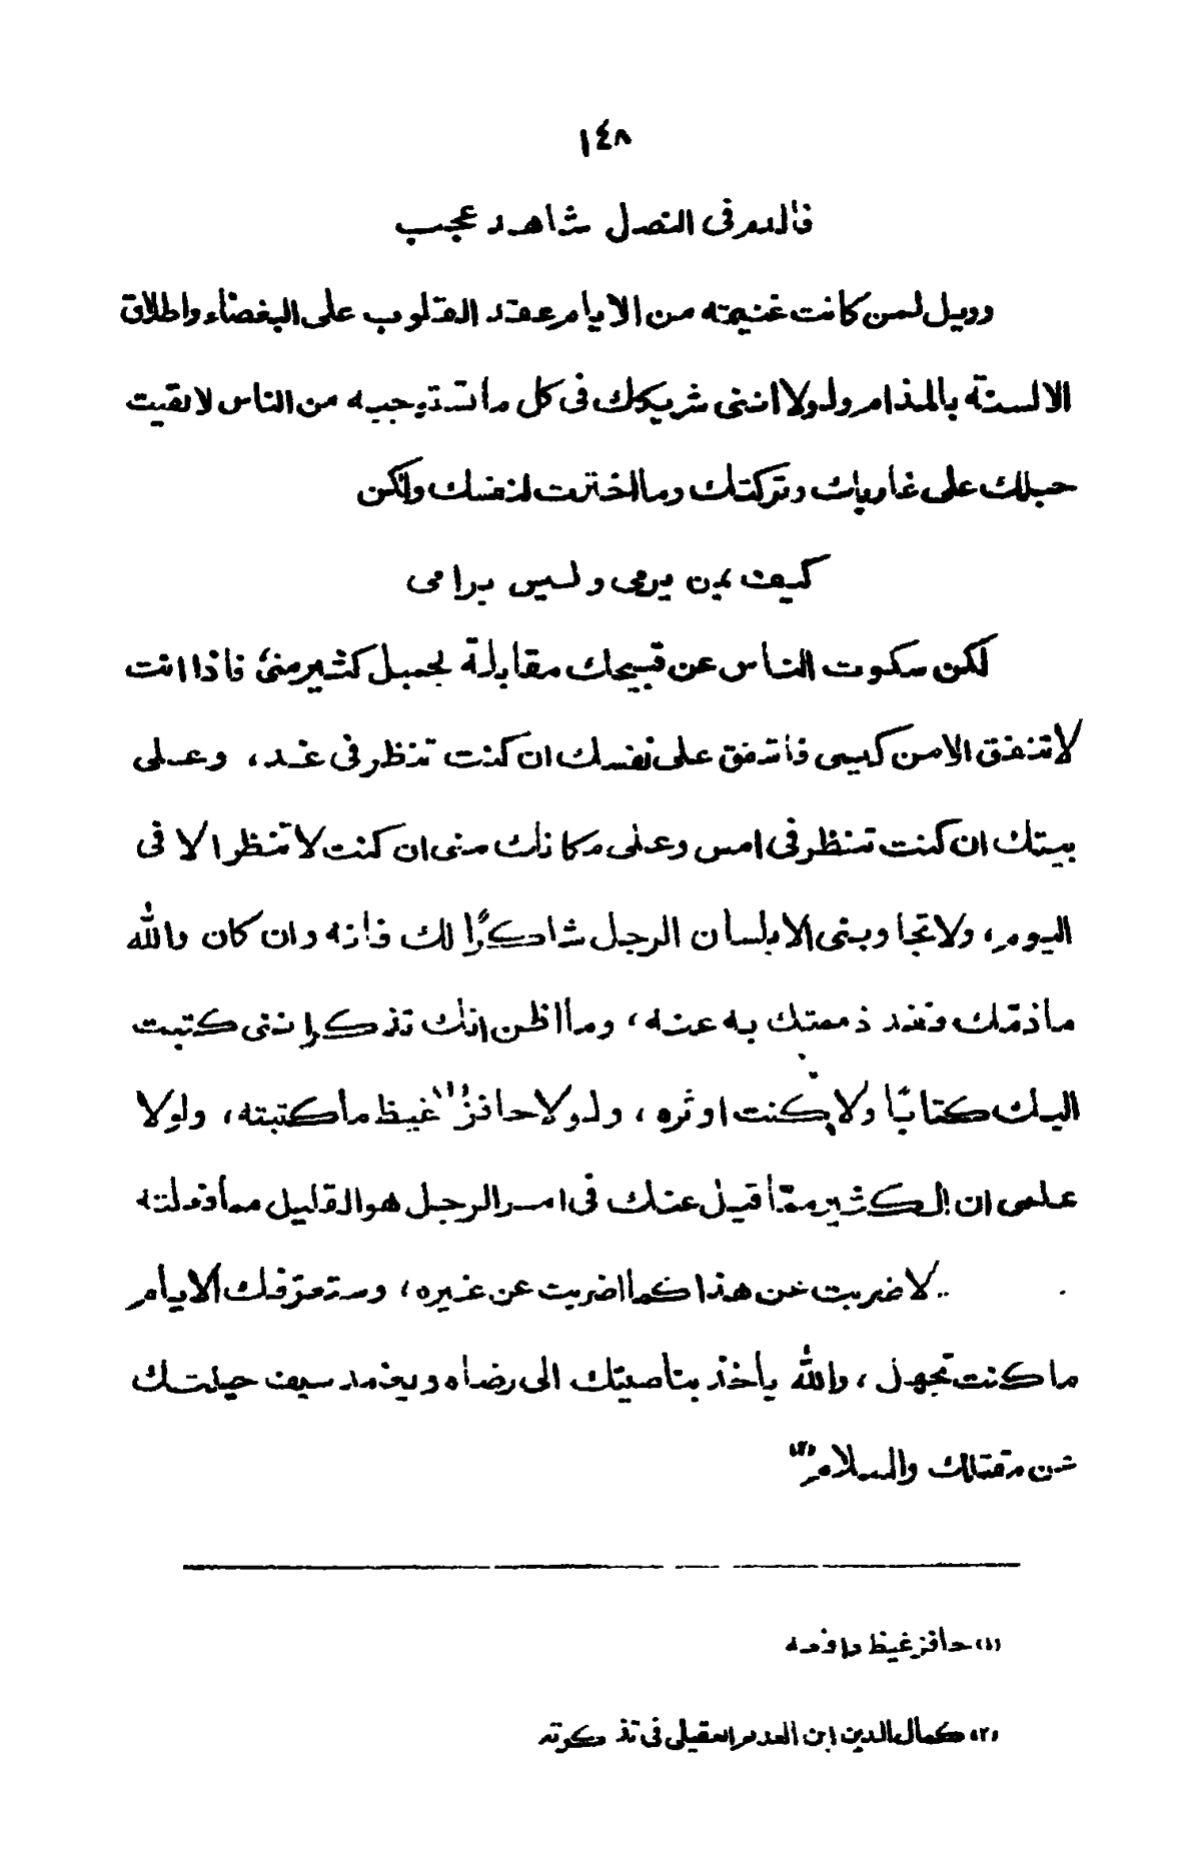 ١٤٨
فالدم فى النصل شاهد عجب
وويل لمن كانت غنيمته من الايام عقد القلوب على البغضاء واطلاق
الالسنة بالمذام ولولا اننى شريكك فى كل ما تستوجبه من الناس لالقيت
حبلك على غاربك وتركتك وما اخترت لنفسك ولكن
كيف بمن يرمى وليس برامى
لكن سكوت الناس عن قبيحك مقابلة لجميل كثير منى فاذا انت
لا تنفق الا من كيسى فاشفق على نفسك ان كنت تنظر فى غد، وعلى
بيتك ان كنت تنظر فى امس وعلى مكانك منى ان كنت لا تنظر الا فى
اليوم، ولا تجاوبنى الا بلسان الرجل شاكرًا لك فانه وان كان والله
ما ذمّك فقد ذممتك به عنه، وما اظن انك تذكر اننى كتبت
اليك كتابًا ولا كنت اوثره، ولولا حافز(١) غيظ ما كتبته، ولولا
علمى ان الكثير ممّا قيل عنك فى امر الرجل هو القليل مما فعلته
لاضربت عن هذا كما اضربت عن غيره، وستعرّفك الايام
ما كنت تجهل، والله يأخذ بناصيتك الى رضاه ويغمد سيف حيلتك
عن مقتلك والسلام(٢)
(١) حافز غيظ دافعه
(٢) كمال الدين ابن العديم العقيلى فى تذكرته